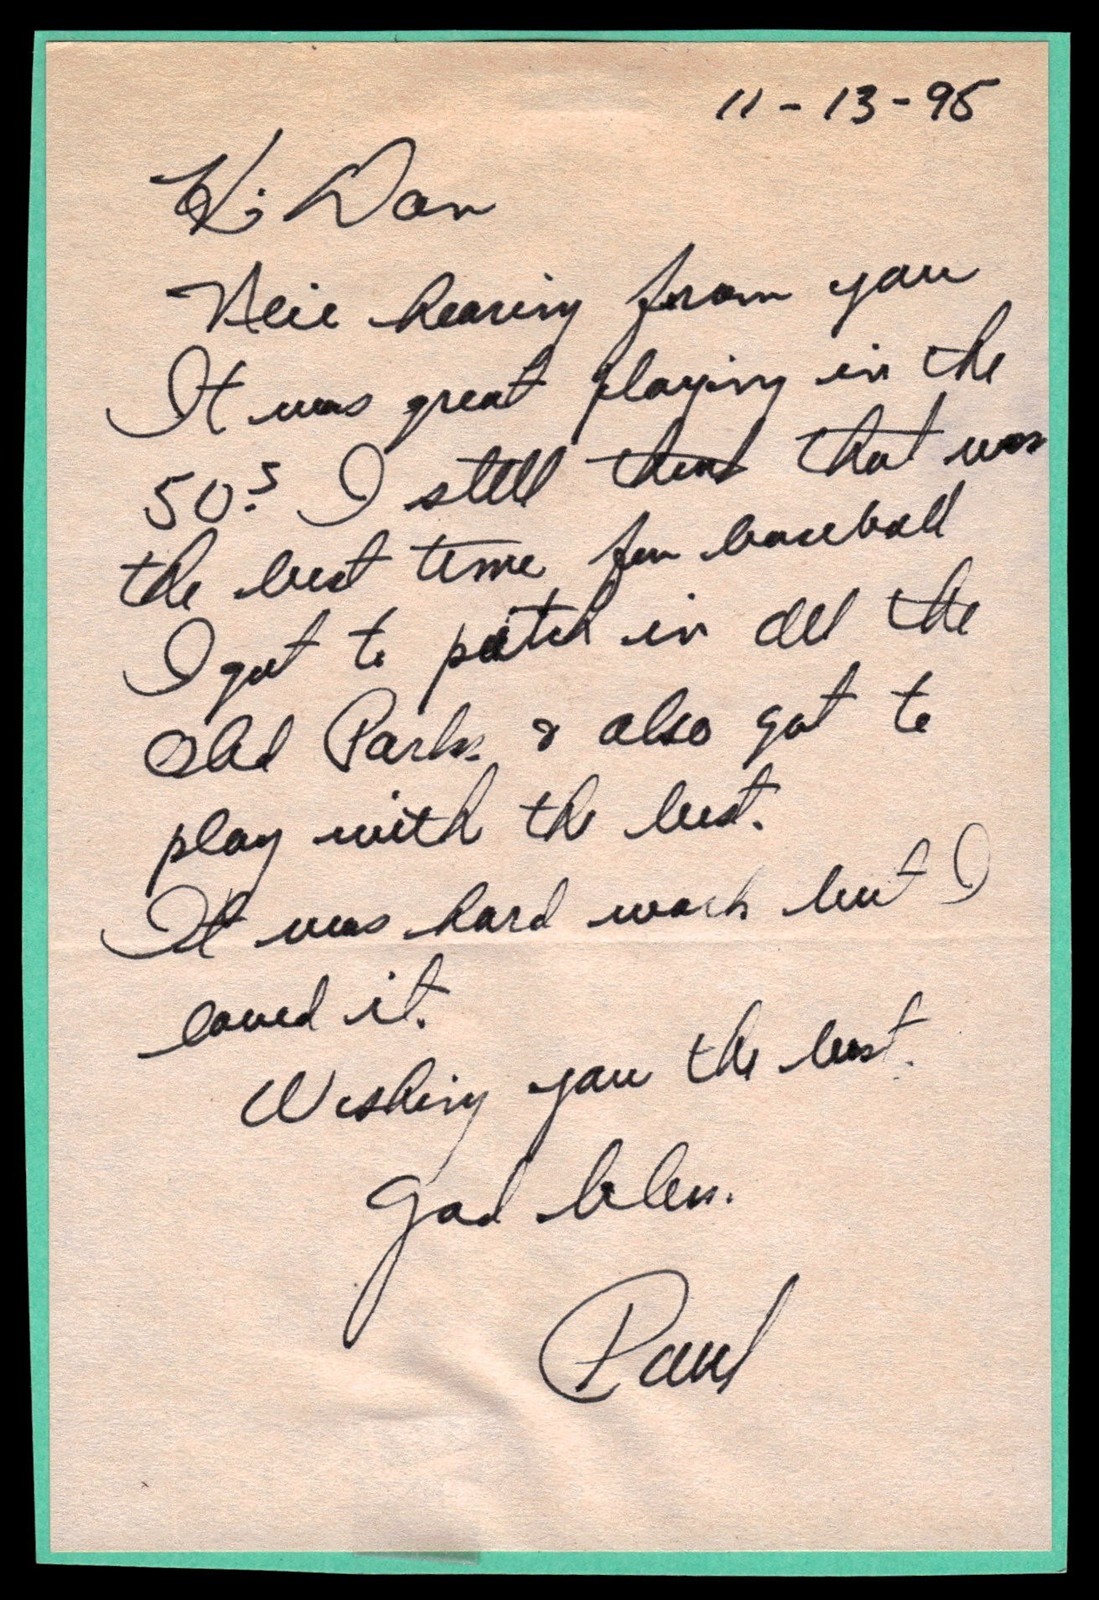 11-13-95
Hi Dan
Nice hearing from you
It was great playing in the
50s. I still think that was
the best time for baseball
I got to pitch in all the
Old Parks & also got to
play with the best.
It was hard work but I
loved it.
Wishing you the best.
God bless.
Paul